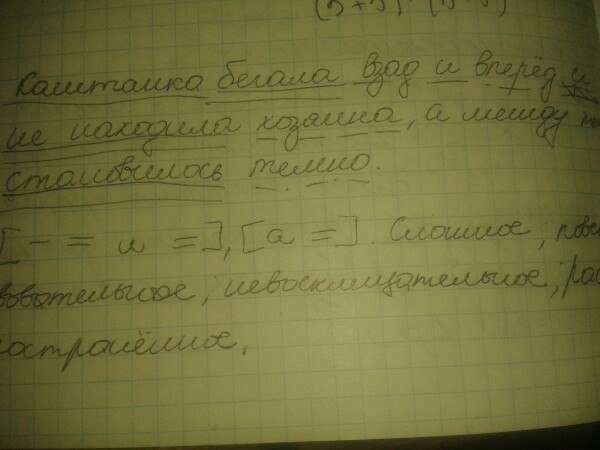 Каштанка бегала взад и вперёд и
не находила хозяина, а между
становилось темно.
[— = и =], [а =]. Сложное, повес
вовательное, невосклицательное, рас
остранённое.